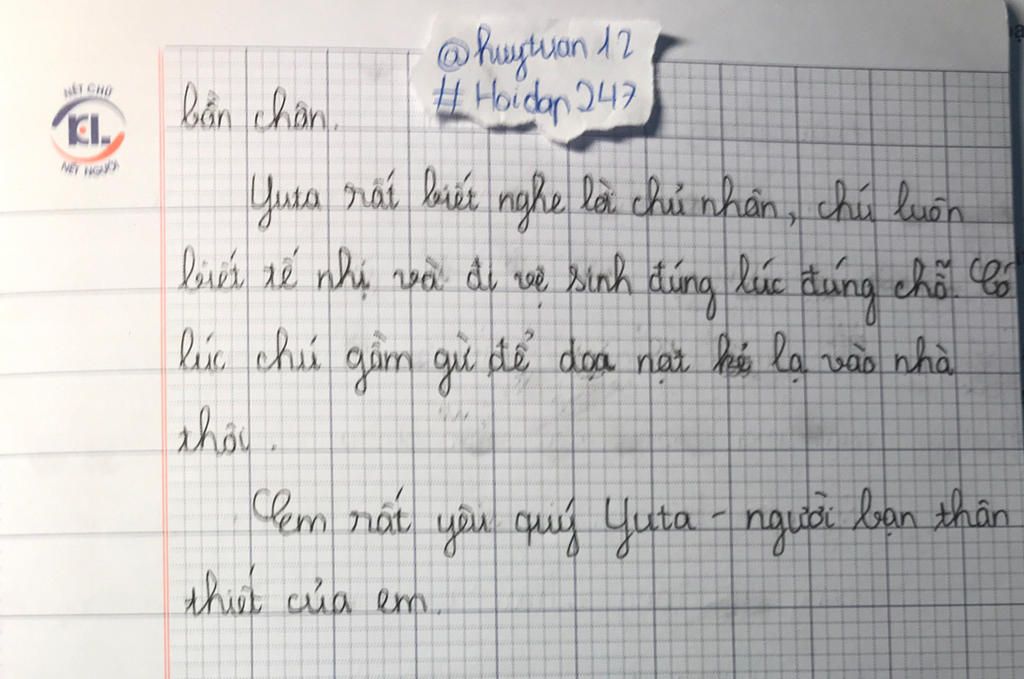 @huytuan12
#Hoidap247
NÉT CHỮ
KL
NÉT NGƯỜI
bẩn chân.
Yuta rất biết nghe lời chủ nhân, chú luôn
biết tế nhị và đi vệ sinh đúng lúc đúng chỗ. Có
lúc chú gầm gừ để dọa nạt kẻ lạ vào nhà
thôi.
Em rất yêu quý Yuta - người bạn thân
thiết của em.